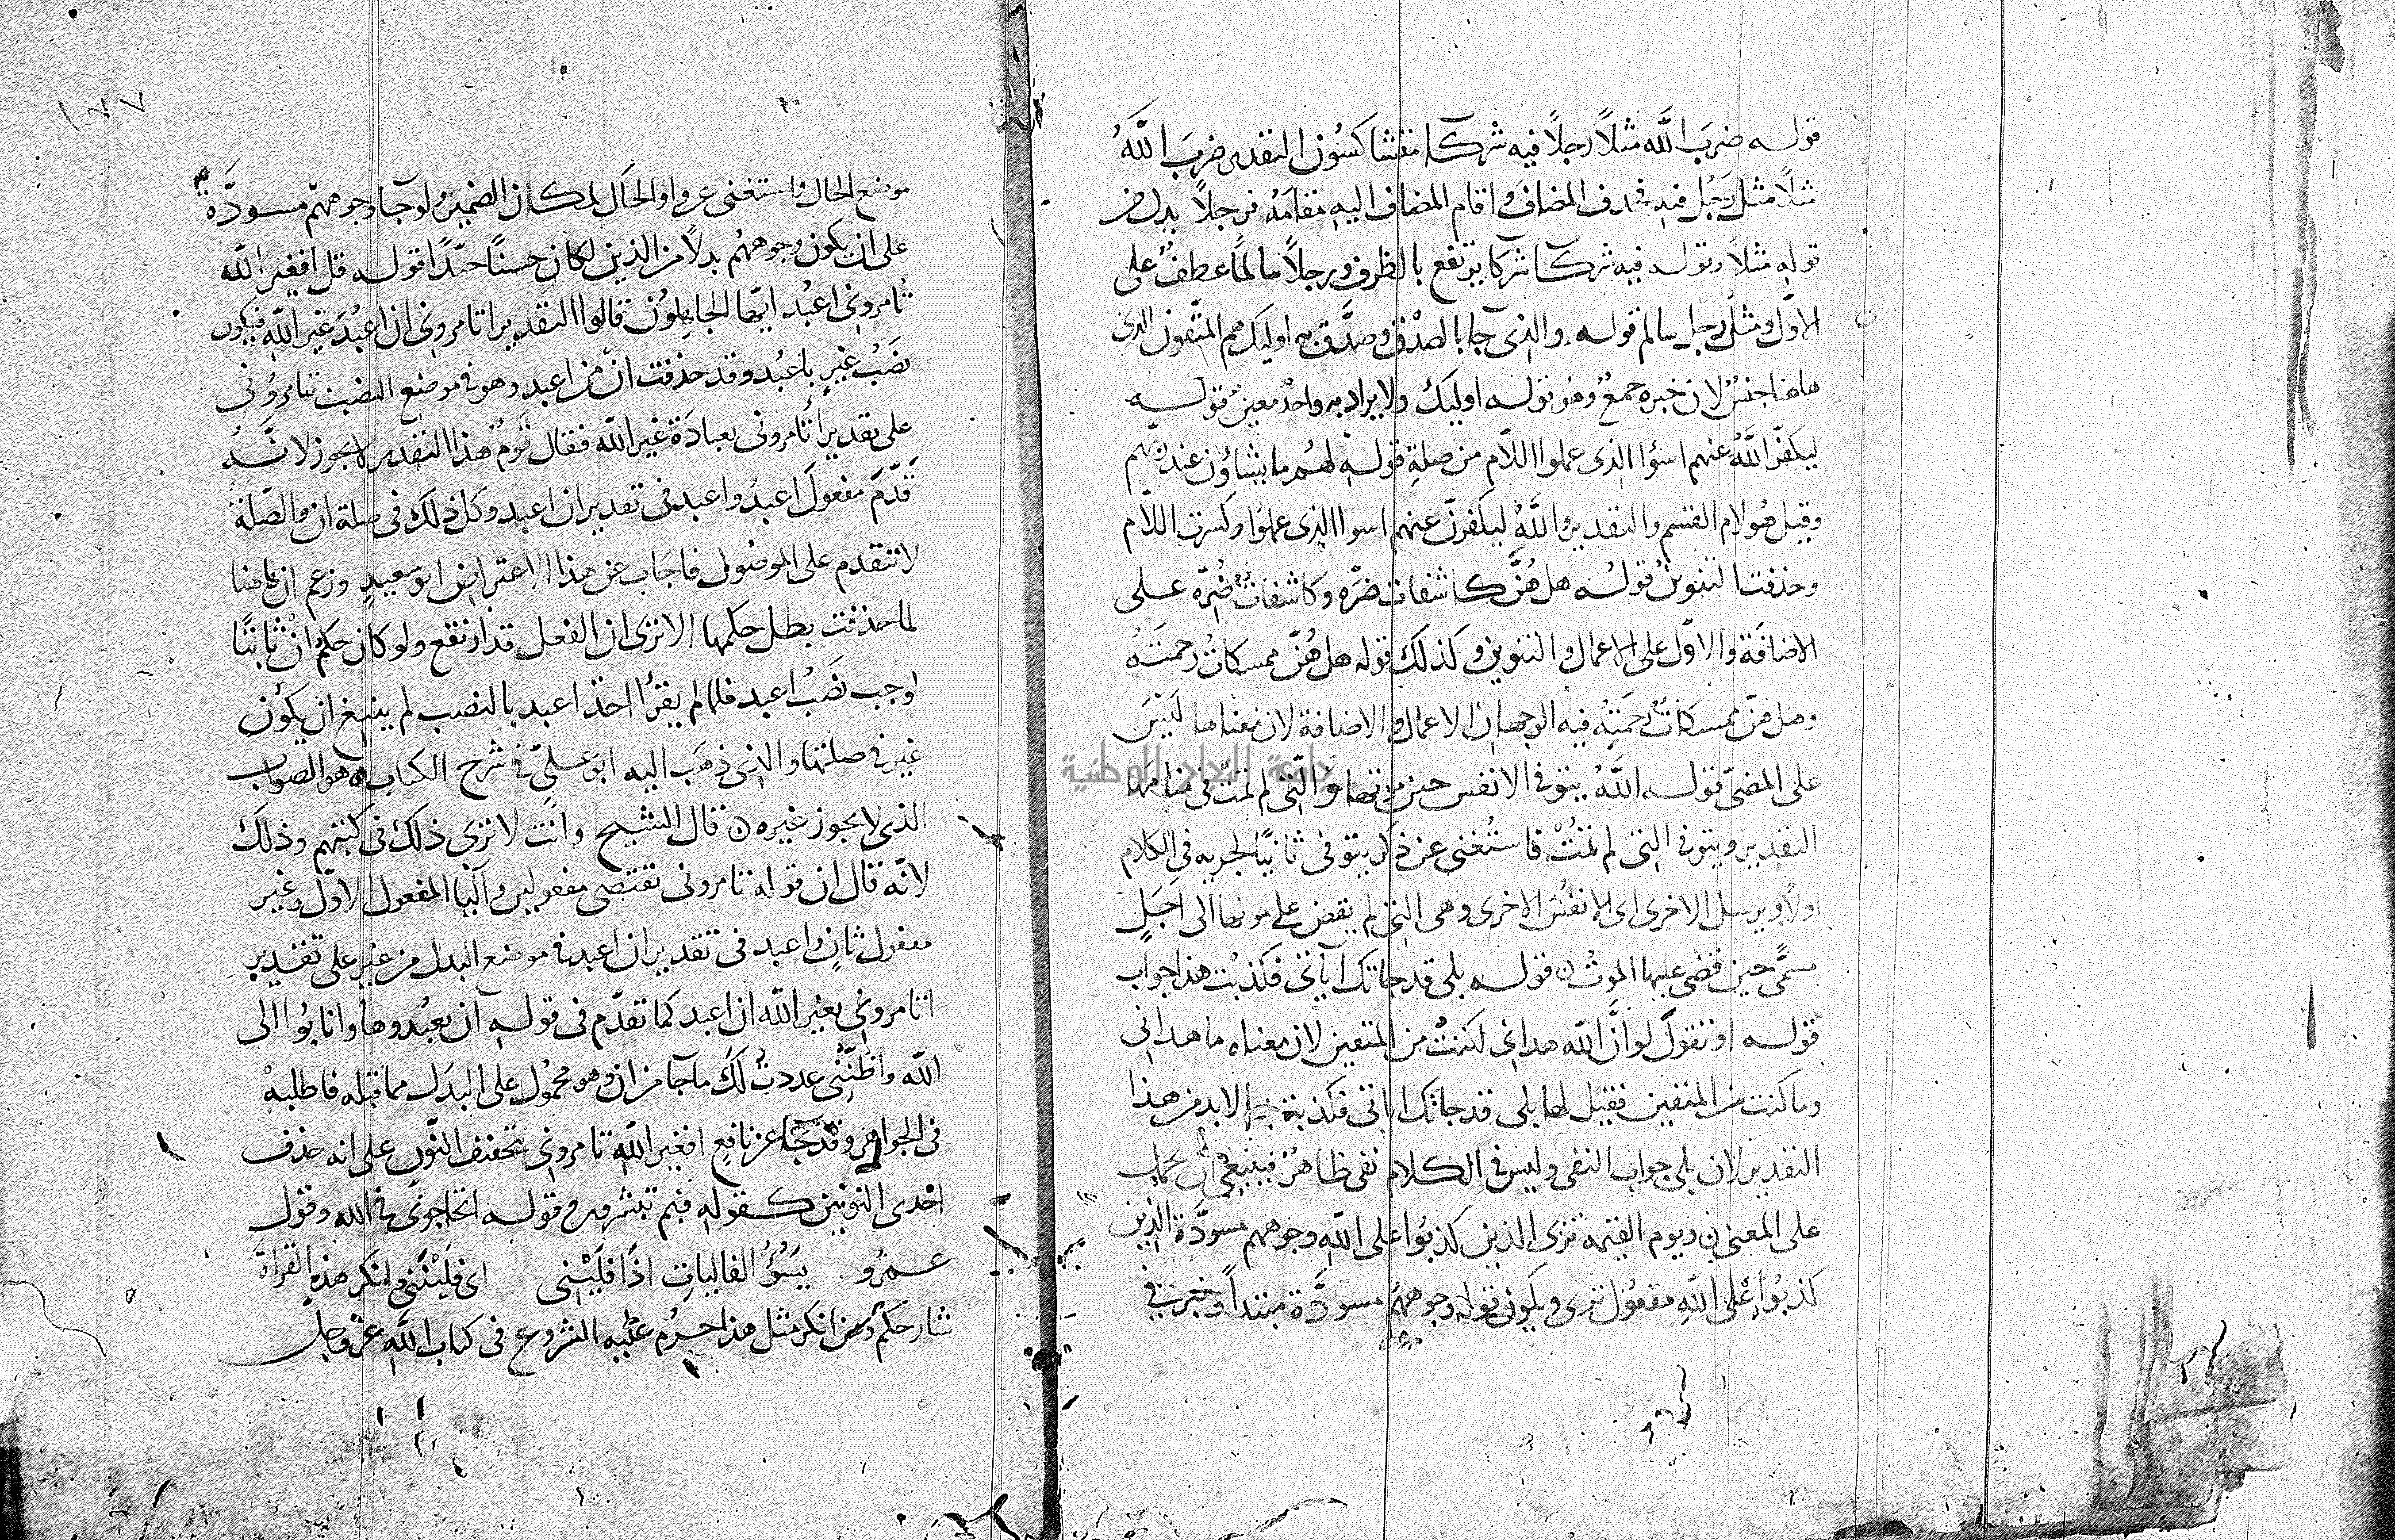 قوله ضرب الله مثلاً رجلاً فيه شركا متشاكسون التقدير ضرب اللهُ
مثلاً مثل رجل فيه فحذف المضاف واقام المضاف اليه مقامه فرجلاً بدل من
قوله مثلاً وقوله فيه شركا شركا يرتفع بالظرف ورجلاً سالماً عطف على
الاوّل ومثل رجل سالم قوله والذي جا بالصدق وصدّق به اوليك هم المتقون الذي
هاهنا جنس لان خبره جمع وهو قوله اوليك ولا يراد به واحد معين قوله
ليكفّر اللهُ عنهم اسوا الذي عملوا اللام من صلة قوله لهم ما يشاؤن عند ربهم
وقيل هو لام القسم والتقدير والله ليكفرنّ عنهم اسوا الذي عملوا وكسرت اللام
وحذفت النون قوله هل هُنّ كاشفات ضرّه وكاشفاتٌ ضُرّه على
الاضافة والاوّل على الاعمال والتنوين وكذلك قوله هل هُنّ ممسكاتٌ رحمتَهُ
وهل هنّ ممسكاتُ رحمتِهِ فيه الوجهان الاعمال والاضافة لان معناها ليس
على المضي قوله اللهُ يتوفى الانفس حين موتها والتي لم تمت في منامها
التقدير ويتوفى التي لم تمُتْ فاستُغنى عن ذكر يتوفى ثانيًا لجريه في الكلام
اولاً ويرسل الاخرى اى الانفُسَ الاخرى وهي التي لم يقض على موتها الى اجَلٍ
مسمًّى حين قضى عليها الموت ن قوله بلى قد جاتك آياتي فكذبت هذا جواب
قوله او تقول لو انّ الله هداني لكنتُ من المتقين لان معناه ما هداني
وما كنت من المتقين فقيل لها بلى قد جاتك اياتي فكذبت بها لابد من هذا
التقدير لان بلى جواب النفي وليس في الكلام نفي ظاهرٌ فينبغي أن يحمل
على المعنى ن ويوم القيمة ترى الذين كذبُوا على اللهِ وجوههم مسودَّة الذين
كذبُوا على اللهِ مفعُول ترى ويكون قوله وجوههُم مسودَّة مبتداً وخبر في
١٧٧
موضع الحال واستغنى عن واو الحال لمكان الضمير ولو جا وجوههم مسودَّةً
على ان يكون وجوههُم بدلاً من الذين لكان حسنًا جيّدًا قوله قل افغير الله
تامروني اعبُد ايّها الجاهِلوُن قالوا التقدير اتامروني ان اعبُدَ غير الله فيكون
نصَبُ غيرٍ باعبُد وقد حذفت ان من اعبد وهو في موضع النصب بتامرُوني
على تقدير أتامروني بعبادَة غير الله فقال قوم هذا التقدير لا يجوز لانَّهُ
قدّم مفعولَ اعبدُ واعبد في تقدير ان اعبد وكل ذلك في صلة ان والصّلةُ
لا تتقدم على الموصُول فاجاب عن هذا الاعتراض ابو سعيدٍ وزعم ان هاهنا
لما حذفت بطل حكمها الا ترى ان الفعل قد ارتفع ولو كان حكم انْ ثابتًا
لوجب نصَبُ اعبد فلما لم يقرُا احَدٌ اعبد بالنصب لم ينبغ ان يكون
غير في صلتها والذي ذهَب اليه ابو عليّ في شرح الكتاب وهو الصواب
الذي لا يجوز غيره ن قال الشيخ وانت لا ترى ذلك في كتبهم وذلك
لانّه قال ان قوله تامروني تقتضي مفعولين واليا المفعول الاوّل وغير
مفعول ثانٍ واعبد في تقدير ان اعبد في موضع البدل من غير على تقدير
اتامروني بغير الله ان اعبد كما تقدّم في قوله ان يعبُدوها وانابوُا الى
الله واظنّنِي عددت لك ما جا من ان وهو محمُول على البدَل مما قبله فاطلبهُ
في الجواهر وقد جَا عن نافعٍ افغير اللهِ تامروني بتخفيف النّون على انه حذف
احدى النونين كقوله فبم تبشرون وقوله اتحاجوني في الله وقول
عمرٍو يسُوُ الفالياتِ اذا فَلَيْنِي اى فلَيْنَنِي وانكر هذه القراة
شارحكم ومن انكر مثل هذا حرُم عليه الشروع في كتاب اللهِ عزّ وجلّ